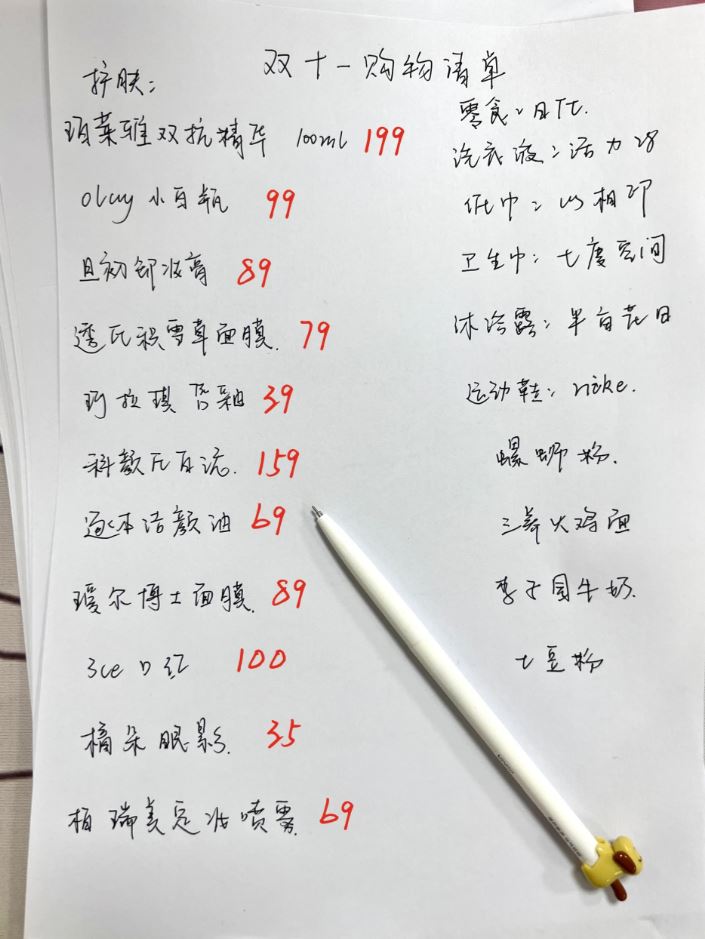 双十一购物清单
护肤：
珀莱雅双抗精华 100ml 199
olay 小白瓶 99
且初卸妆膏 89
透氏积雪草面膜. 79
玛拉琪唇釉 39
科颜氏白泥. 159
逐本洁颜油 69
瑷尔博士面膜. 89
3ce 口红 100
橘朵眼影. 35
柏瑞美定妆喷雾. 69
零食：
洗衣液：活力28
纸巾：心相印
卫生巾：七度空间
沐浴露：半亩花田
运动鞋：nike.
螺蛳粉.
三养火鸡面
李子园牛奶.
土豆粉